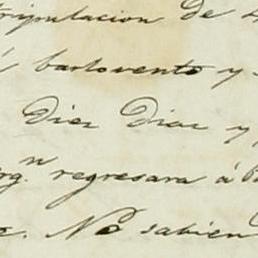 tripulacion de
á barlovento y
Diez Dias y
rg.n regresara á
No sabien